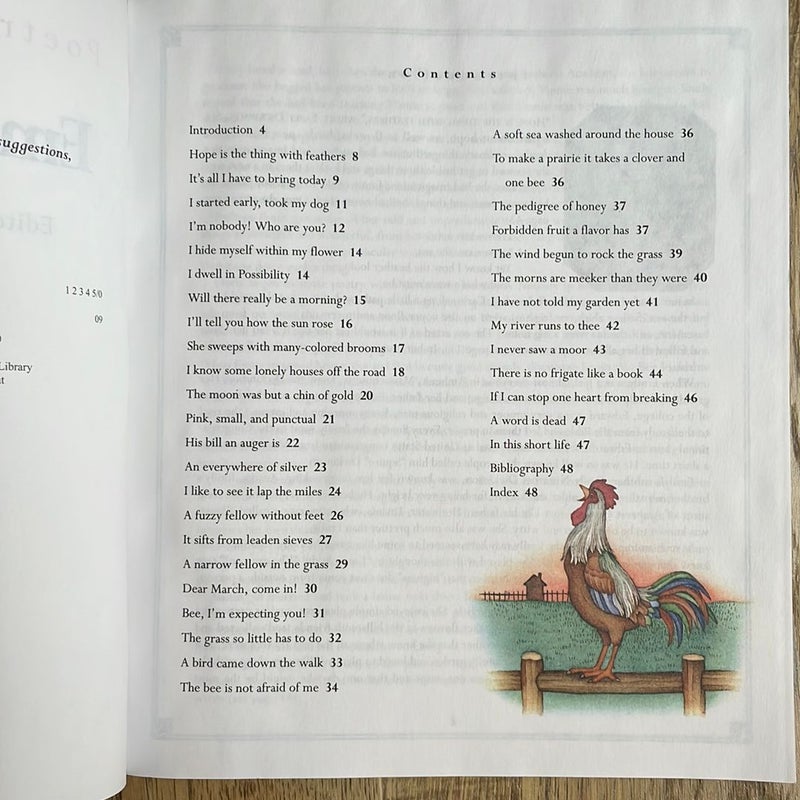 suggestions,
1 2 3 4 5/0
09
Library
Contents
Introduction 4
Hope is the thing with feathers 8
It's all I have to bring today 9
I started early, took my dog 11
I'm nobody! Who are you? 12
I hide myself within my flower 14
I dwell in Possibility 14
Will there really be a morning? 15
I'll tell you how the sun rose 16
She sweeps with many-colored brooms 17
I know some lonely houses off the road 18
The moon was but a chin of gold 20
Pink, small, and punctual 21
His bill an auger is 22
An everywhere of silver 23
I like to see it lap the miles 24
A fuzzy fellow without feet 26
It sifts from leaden sieves 27
A narrow fellow in the grass 29
Dear March, come in! 30
Bee, I'm expecting you! 31
The grass so little has to do 32
A bird came down the walk 33
The bee is not afraid of me 34
A soft sea washed around the house 36
To make a prairie it takes a clover and
one bee 36
The pedigree of honey 37
Forbidden fruit a flavor has 37
The wind begun to rock the grass 39
The morns are meeker than they were 40
I have not told my garden yet 41
My river runs to thee 42
I never saw a moor 43
There is no frigate like a book 44
If I can stop one heart from breaking 46
A word is dead 47
In this short life 47
Bibliography 48
Index 48